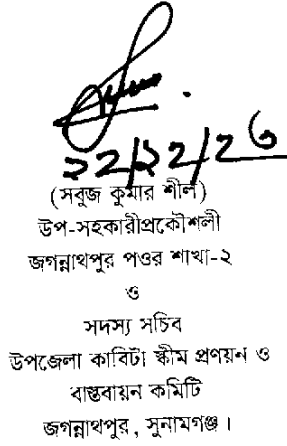 ২২/১২/২৩
(সবুজ কুমার শীল)
উপ-সহকারীপ্রকৌশলী
জগন্নাথপুর পওর শাখা-২
ও
সদস্য সচিব
উপজেলা কাবিটা স্কীম প্রণয়ন ও
বাস্তবায়ন কমিটি
জগন্নাথপুর, সুনামগঞ্জ।